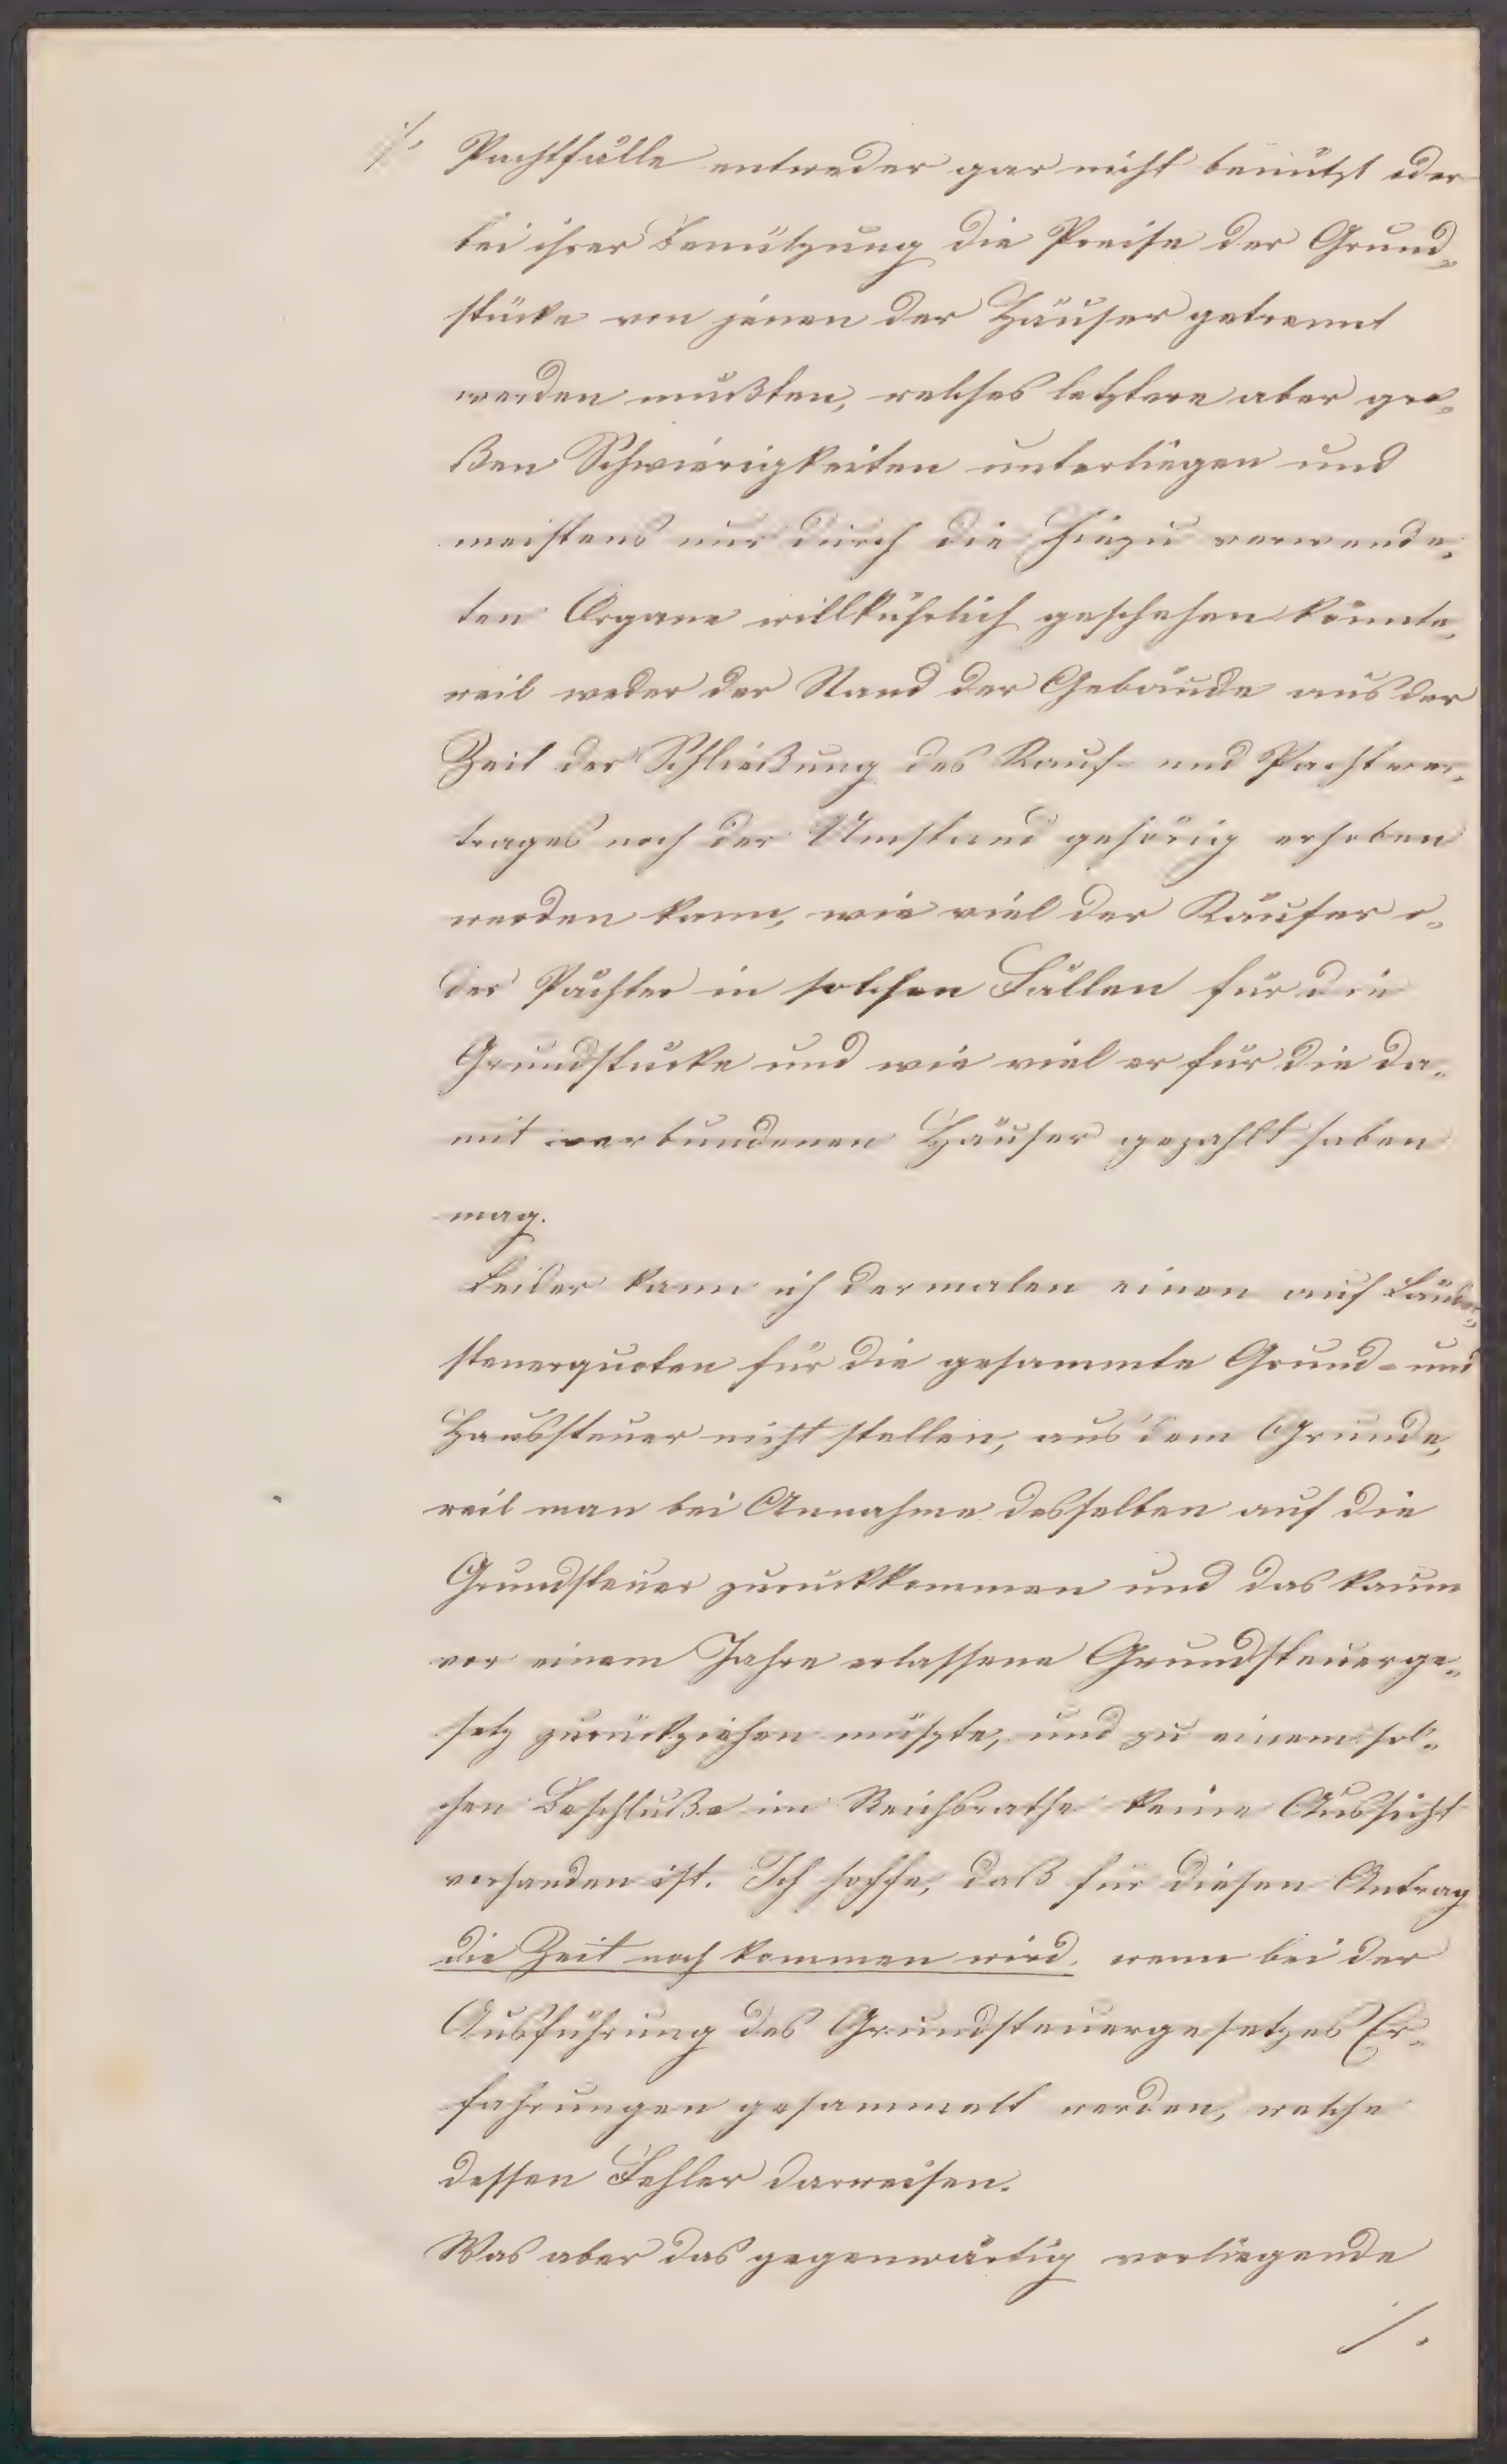 ./. Pachtfälle entweder gar nicht benützt oder
bei ihrer Benützung die Preise der Grund„
stücke von jenen der Häuser getrennt
werden müßten, welches letztere aber gro„
ßen Schwierigkeiten unterliegen und
meistens nur durch die hiezu verwende„
ten Organe willkührlich geschehen könnte,
weil weder der Stand der Gebäude aus der
Zeit der Schließung des Kauf- und Pachtver„
trages noch der Umstand gehörig erhoben
werden kann, wie viel der Käufer o„
der Pächter in solchen Fällen für die
Grundstücke und wie viel er für die da„
mit verbundenen Häuser gezahlt haben
mag.
Leider kann ich dermalen einen auf Länder„
steuerquoten für die gesammte Grund- und
Haussteuer nicht stellen, aus dem Grunde,
weil man bei Annahme desselben auf die
Grundsteuer zurückkommen und das kaum
vor einem Jahre erlassene Grundsteuerge„
setz zurückziehen müszte, und zu einem sol„
chen Beschluße im Reichsrathe keine Aussicht
vorhanden ist. Ich hoffe, daß für diesen Antrag
die Zeit noch kommen wird, wenn bei der
Ausführung des Grundsteuergesetzes Er„
fahrungen gesammelt werden, welche
dessen Fehler darweisen.
Was aber das gegenwärtig vorliegende
./.